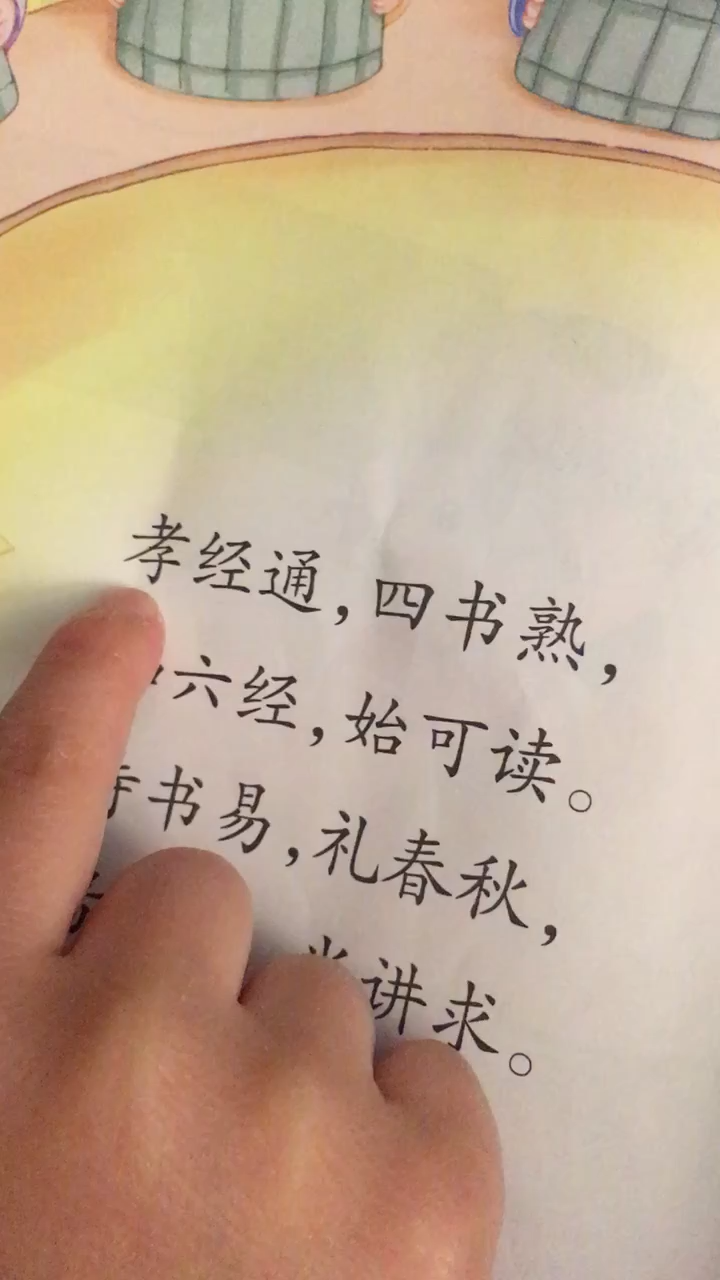 孝经通，四书熟，
六经，始可读。
书易，礼春秋，
讲求。